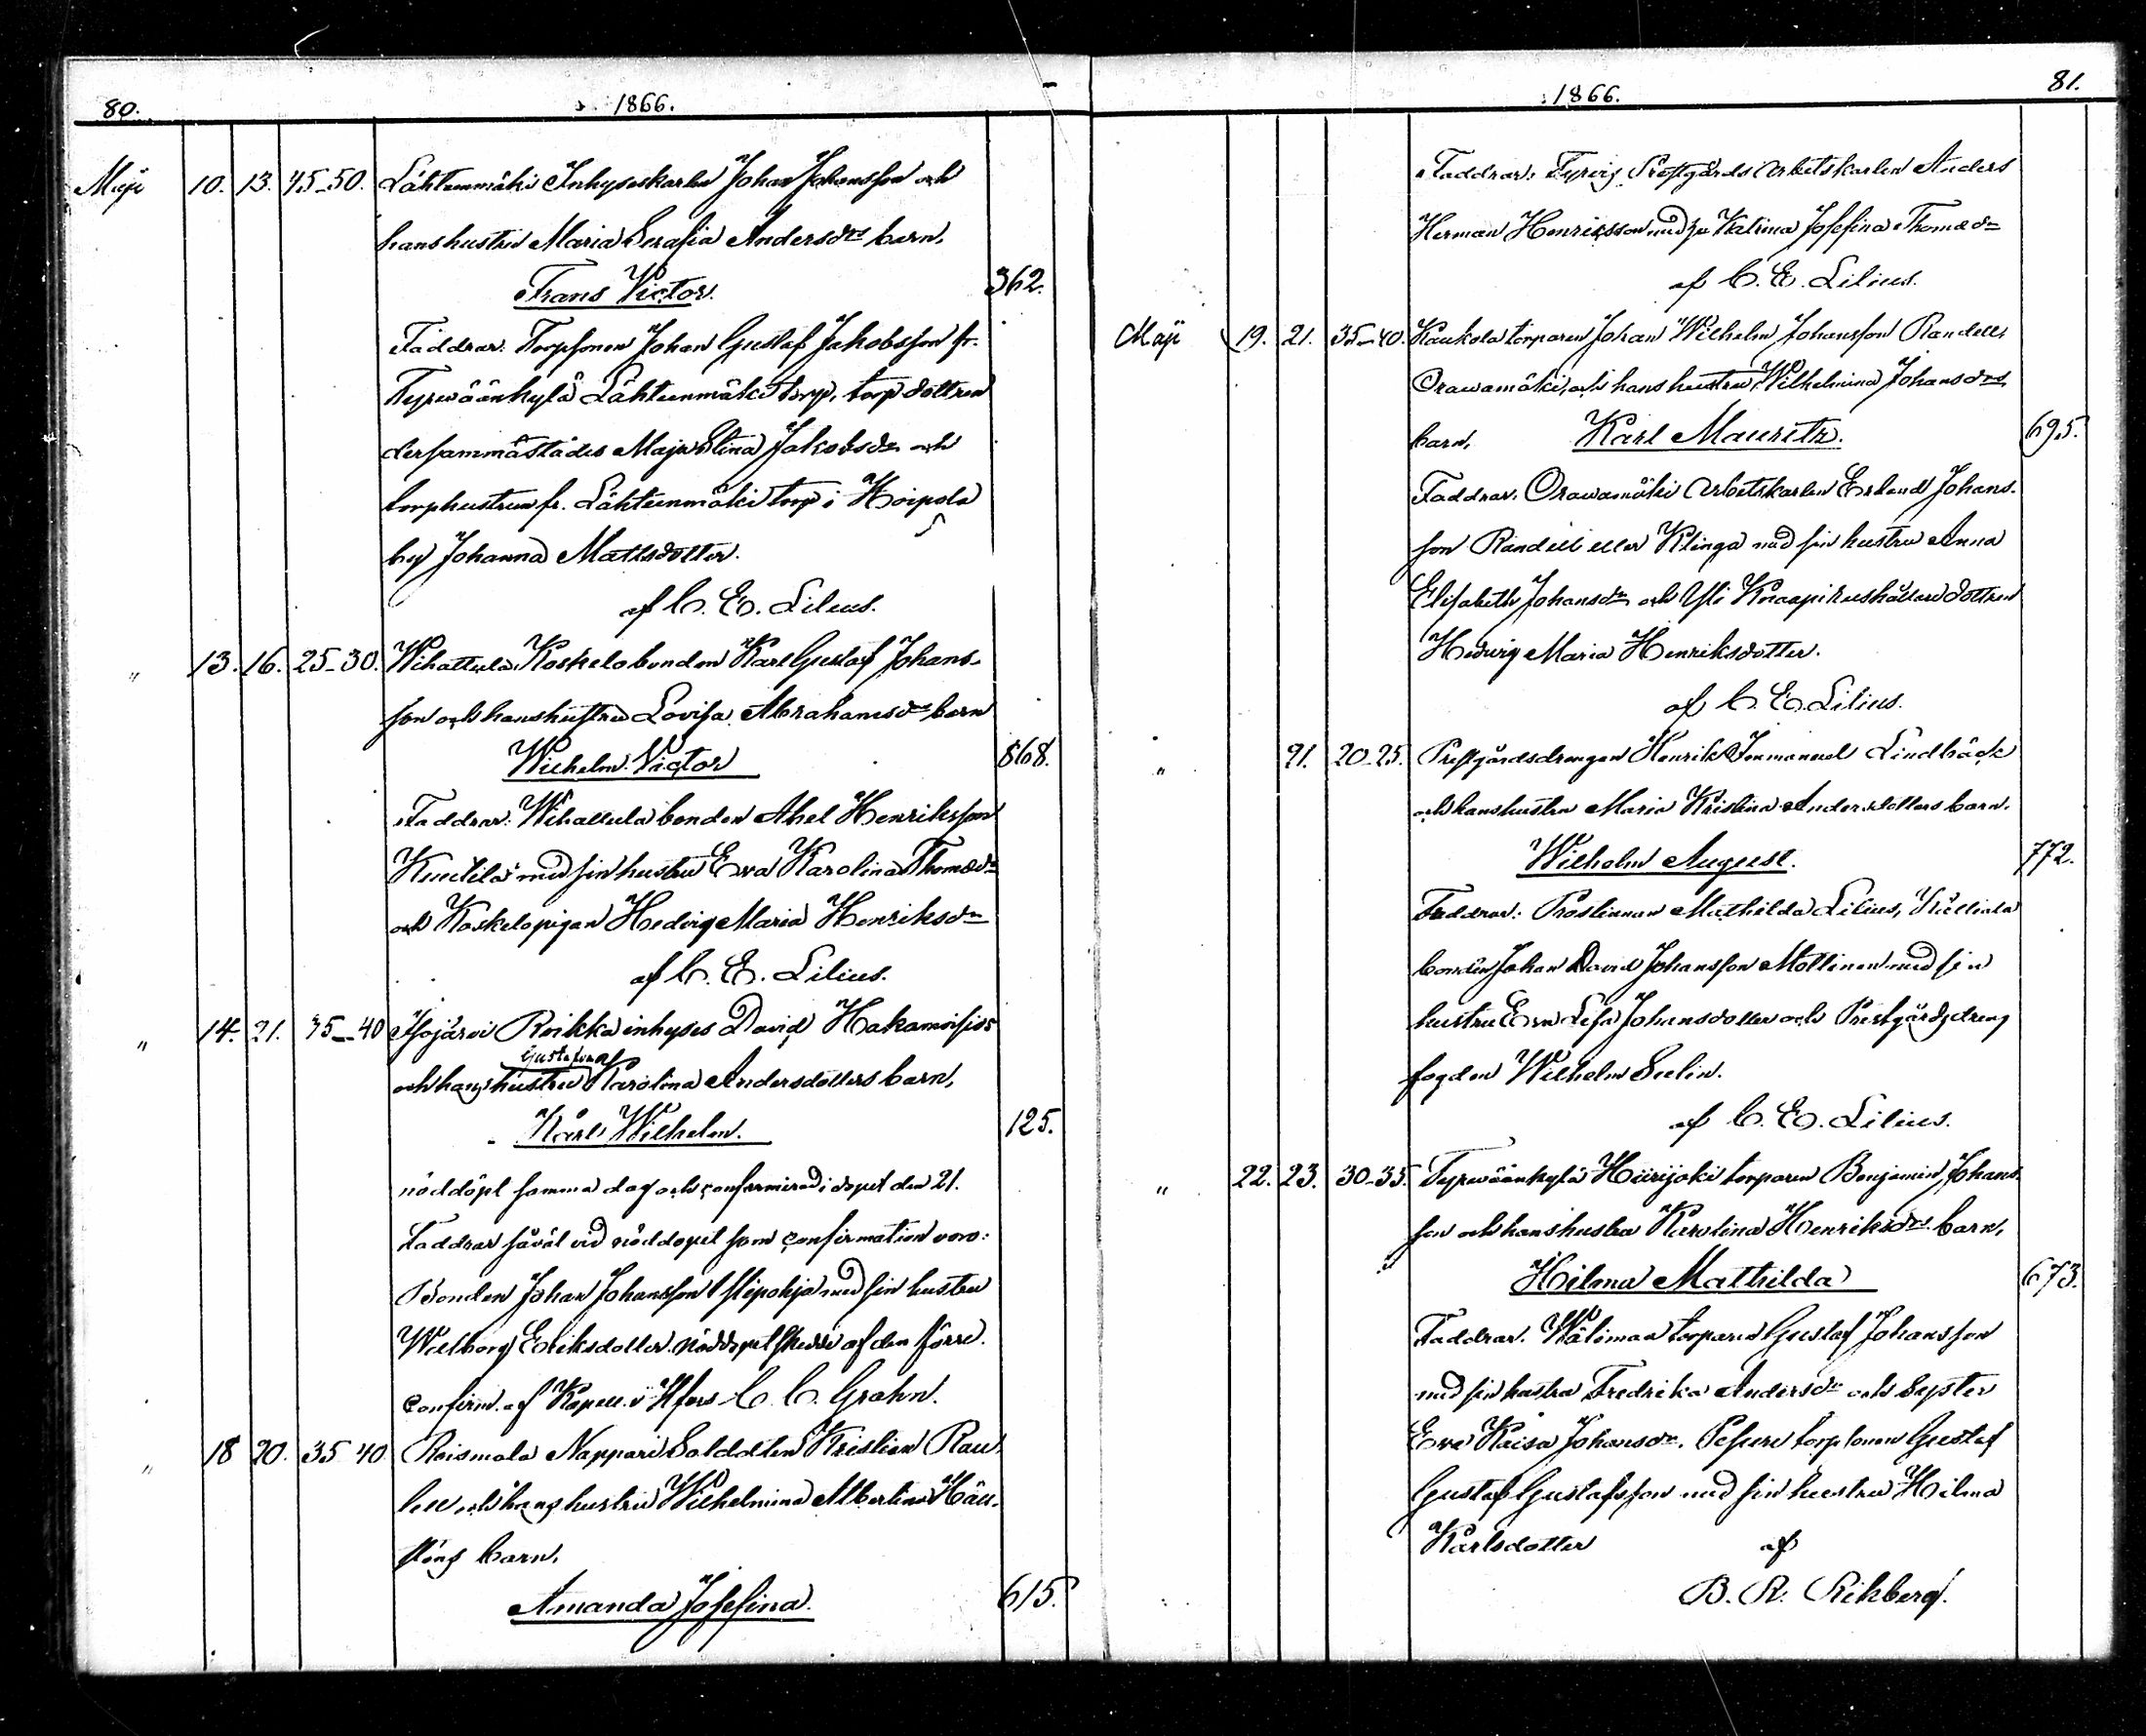 80. 1866.
Maji 10. 13. 45-50. Lähteenmäki Inhyseskarlen Johan Johansson och
hans hustru Maria Serafia Andersdrs barn,
Frans Victor. 362.
Faddrar: Torpsonen Johan Gustaf Jakobsson fr.
Tyrwäänkylä Lähteenmäki torp, torp dottren
dersammastädes Maja Stina Jakobsdr och
torphustrun fr. Lähteenmäki torp i Hoipola
by Johanna Mattsdotter.
af C. E. Lilius.
" 13. 16. 25-30. Wihattula Koskelo bonden Karl Gustaf Johans-
son och hans hustru Lovisa Abrahamsdrs barn
Wilhelm Victor 868.
Faddrar: Wihattula bonden Abel Henriksson
Knuutila med sin hustru Eva Karolina Thomædr
och Koskelopigan Hedvig Maria Henriksdr
af C. E. Lilius.
" 14. 21. 35-40 Isojärvi Roikka inhyses David Hakamoisios
Gustafson
och hans hustru Karolina Andersdotters barn,
Karl Wilhelm. 125.
nöddöpt samma dag och confirmerad i dopet den 21.
Faddrar såväl vid nöddopet som confirmation voro:
Bonden Johan Johansson Ylipohja med sin hustru
Walborg Eriksdotter. nöddopet skedde af den förre.
confirm. af Kapell. i Kfors C. C. Grahn.
" 18 20. 35-40 Roismala Nappari Soldaten Kristian Rau-
hans hustru Wilhelmina Albertina
barn,
Amanda Josefina. 615.
1866. 81.
Faddrar: Tyrvis Prostgårds Arbetskarlen Anders
Herman Henriksson med hu Katrina Josefina Thomædr
af C. E. Lilius.
Maji 19. 21. 35-40. Kaukola torparen Johan Wilhelm Johansson Randell,
Orawamäki, och hans hustru Wilhelmina Johansdrs
barn, Karl Mauritz. 695.
Faddrar: Orawamäki Arbetskarlen Erland Johans-
son Randell eller Klinga med sin hustru Anna
Elisabeth Johansdr och Yli Knaapi rushållare dottren
Hedvig Maria Henriksdotter.
af C. E. Lilius.
" 21. 20-25. Prestgårdsdrengen Henrik Immanuel Lindbäck
och hans hustru Maria Kristina Andersdotters barn.
Wilhelm August. 772.
Faddrar: Prostinnan Mathilda Lilius, Kälviälä
bonden Johan David Johansson Mottinen med sin
hustru Eva Lisa Johansdotter och Prestgårds dreng
fogden Wilhelm Selin.
af C. E. Lilius.
" 22. 23. 30-35. Tyrwäänkylä Hiirijoki torparen Benjamin Johans-
son och hans hustru Karolina Henriksdrs barn,
Hilma Mathilda 673.
Faddrar: Wälimaa torparen Gustaf Johansson
med sin hustru Fredrika Andersdr och Syster
Eva Kaisa Johansdr. torpsonen Gustaf
Gustaf Gustafsson med sin hustru Hilma
Karlsdotter af
B. R. Rikberg.